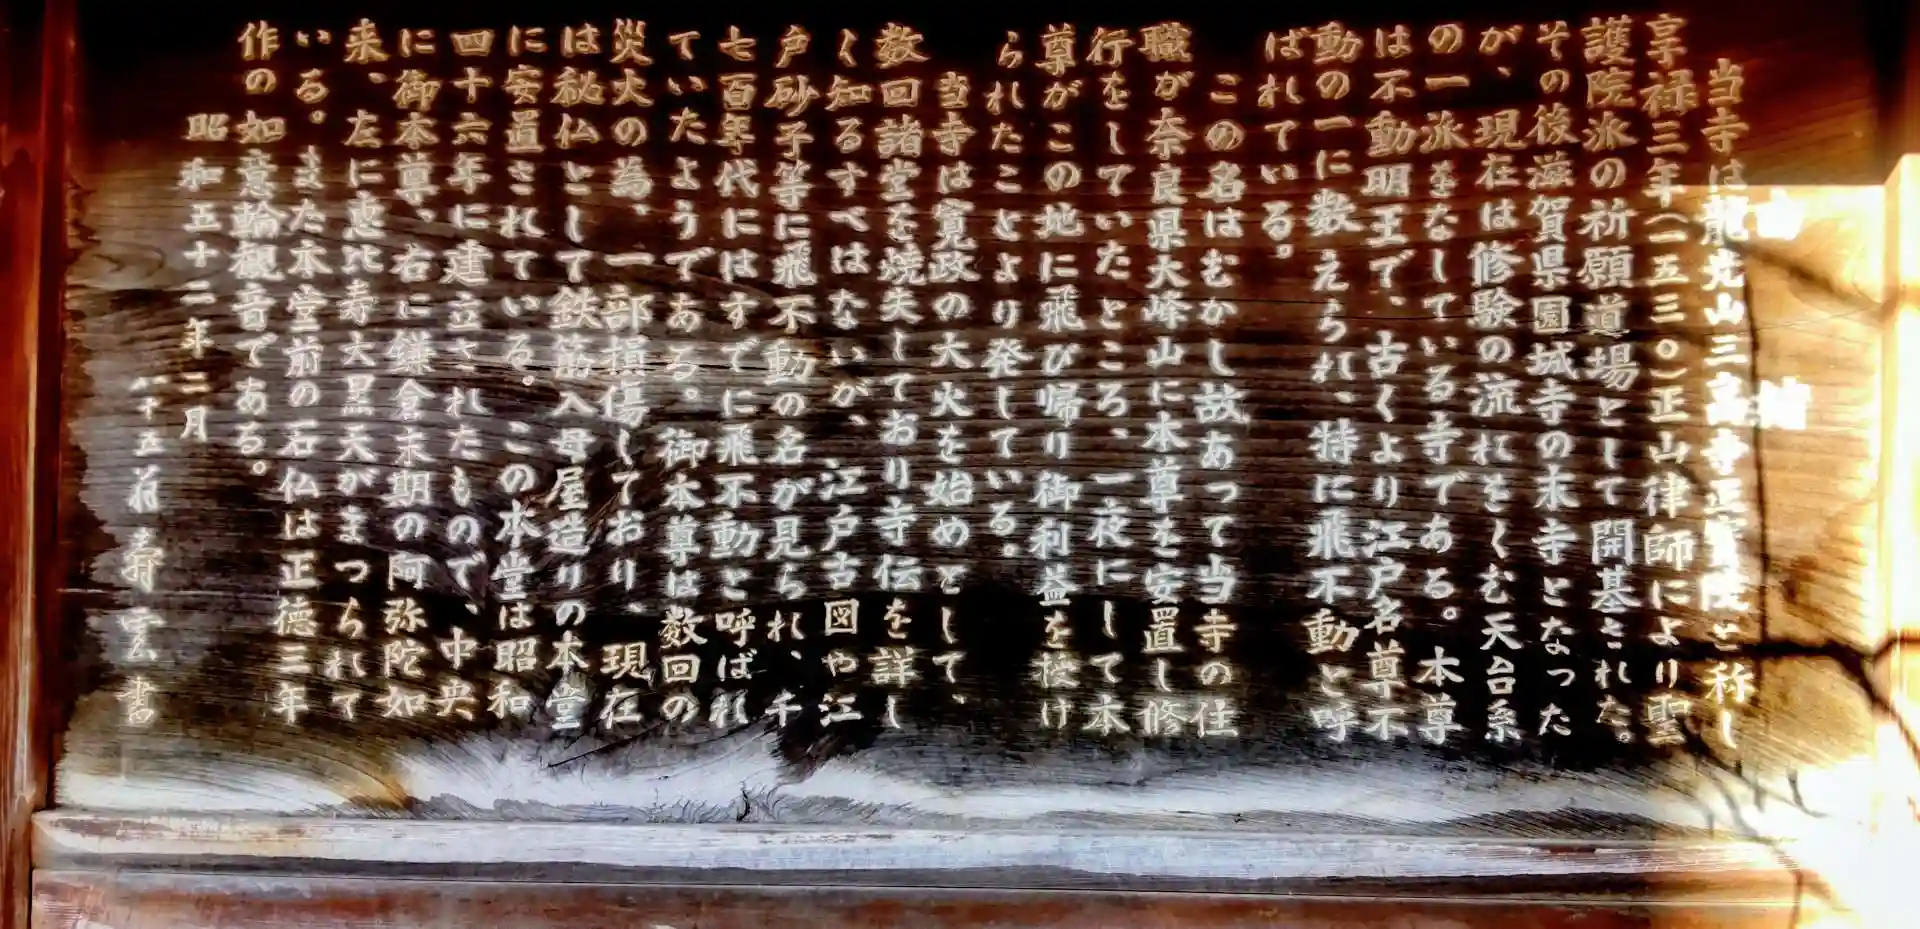 当寺は龍光山三高寺正寳院と称し
享禄三年(一五三〇)正山律師により聖
護院派の祈願道場として開基された。
その後滋賀県園城寺の末寺となった
が、現在は修験の流れをくむ天台系
の一派をなしている寺である。本尊
は不動明王で、古くより江戸名尊不
動の一に数えられ、特に飛不動と呼
ばれている。
この名はむかし故あって当寺の住
職が奈良県大峰山に本尊を安置し修
行をしていたところ、一夜にして本
尊がこの地に飛び帰り御利益を授け
られたことより発している。
当寺は寛政の大火を始めとして、
数回諸堂を焼失しており寺伝を詳し
く知るすべはないが、江戸古図や江
戸砂子等に飛不動の名が見られ、千
七百年代にはすでに飛不動と呼ばれ
ていたようである。御本尊は数回の
災火の為、一部損傷しており、現在
は秘仏として鉄筋入母屋造りの本堂
に安置されている。この本堂は昭和
四十六年に建立されたもので、中央
に御本尊、右に鎌倉末期の阿弥陀如
来、左に恵比寿大黒天がまつられて
いる。また本堂前の石仏は正徳三年
作の如意輪観音である。
昭和五十二年二月
八十五翁寿雲書